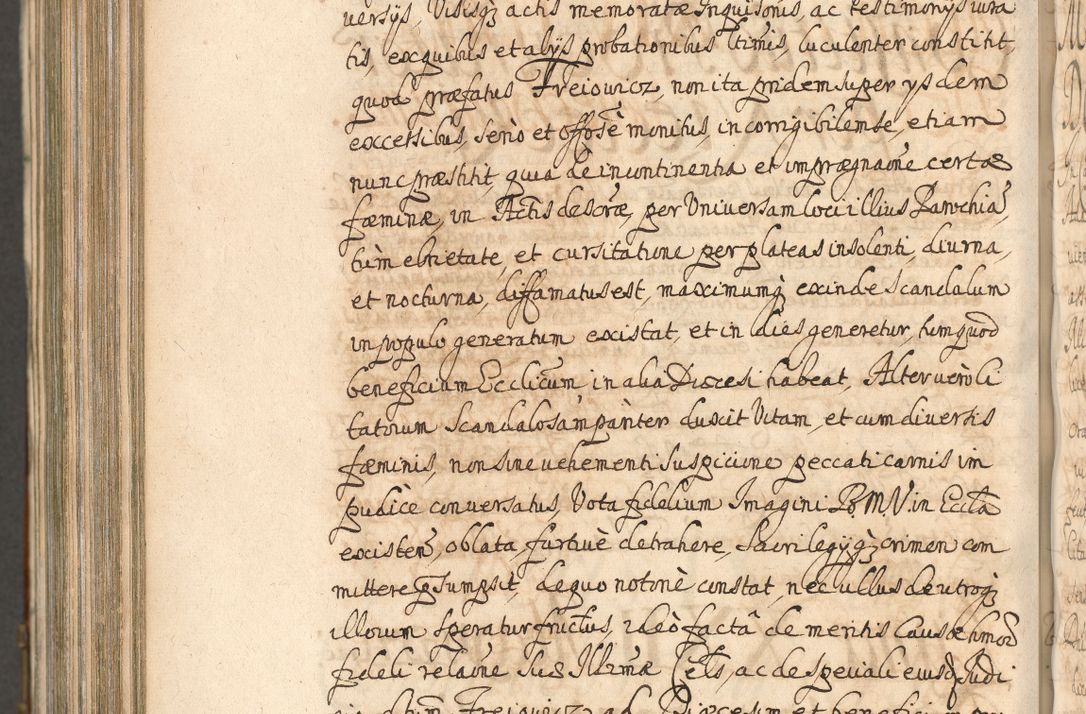 versijs, Visisq; actis memoratæ Inquisonis, ac testimonijs iura
tis, ex quibus et alijs probationibus ltimis, luculenter constitit,
quod præfatus Freiowicz, non ita pridem super ijsdem
excessibus, serio et offose monitus, incorrigibilem se, etiam
nunc præstitit, quia de incontinentia et imprægnaone certæ
fæminæ, in Actis descræ, per Universam loci illius Parochiā,
tum ebrietate, et cursitatione per plateas insolenti, diurna,
et nocturna, diffamatus est, maximumq; exinde scandalum
in populo generatum existat, et in dies generetur, tum quod
beneficium Ecclicum in alia Diæcesi habeat, Alter vero li
tatorum scandalosam pariter duxit Vitam, et cum diversis
fæminis, non sine vehementi suspicione peccati carnis im
pudice conversatus, Vota fidelium Imagini B. M. V. in Eccla
existen, oblata, furtivè detrahere, Sacrilegijq; crimen com
mittere psumpsit, de quo notoriè constat, nec ullus de utroq;
illorum speratur fructus, ideò factâ de meritis causæ hmoi
fideli relaone Suæ Illrmæ Cels, ac de speciali eiusd Judi